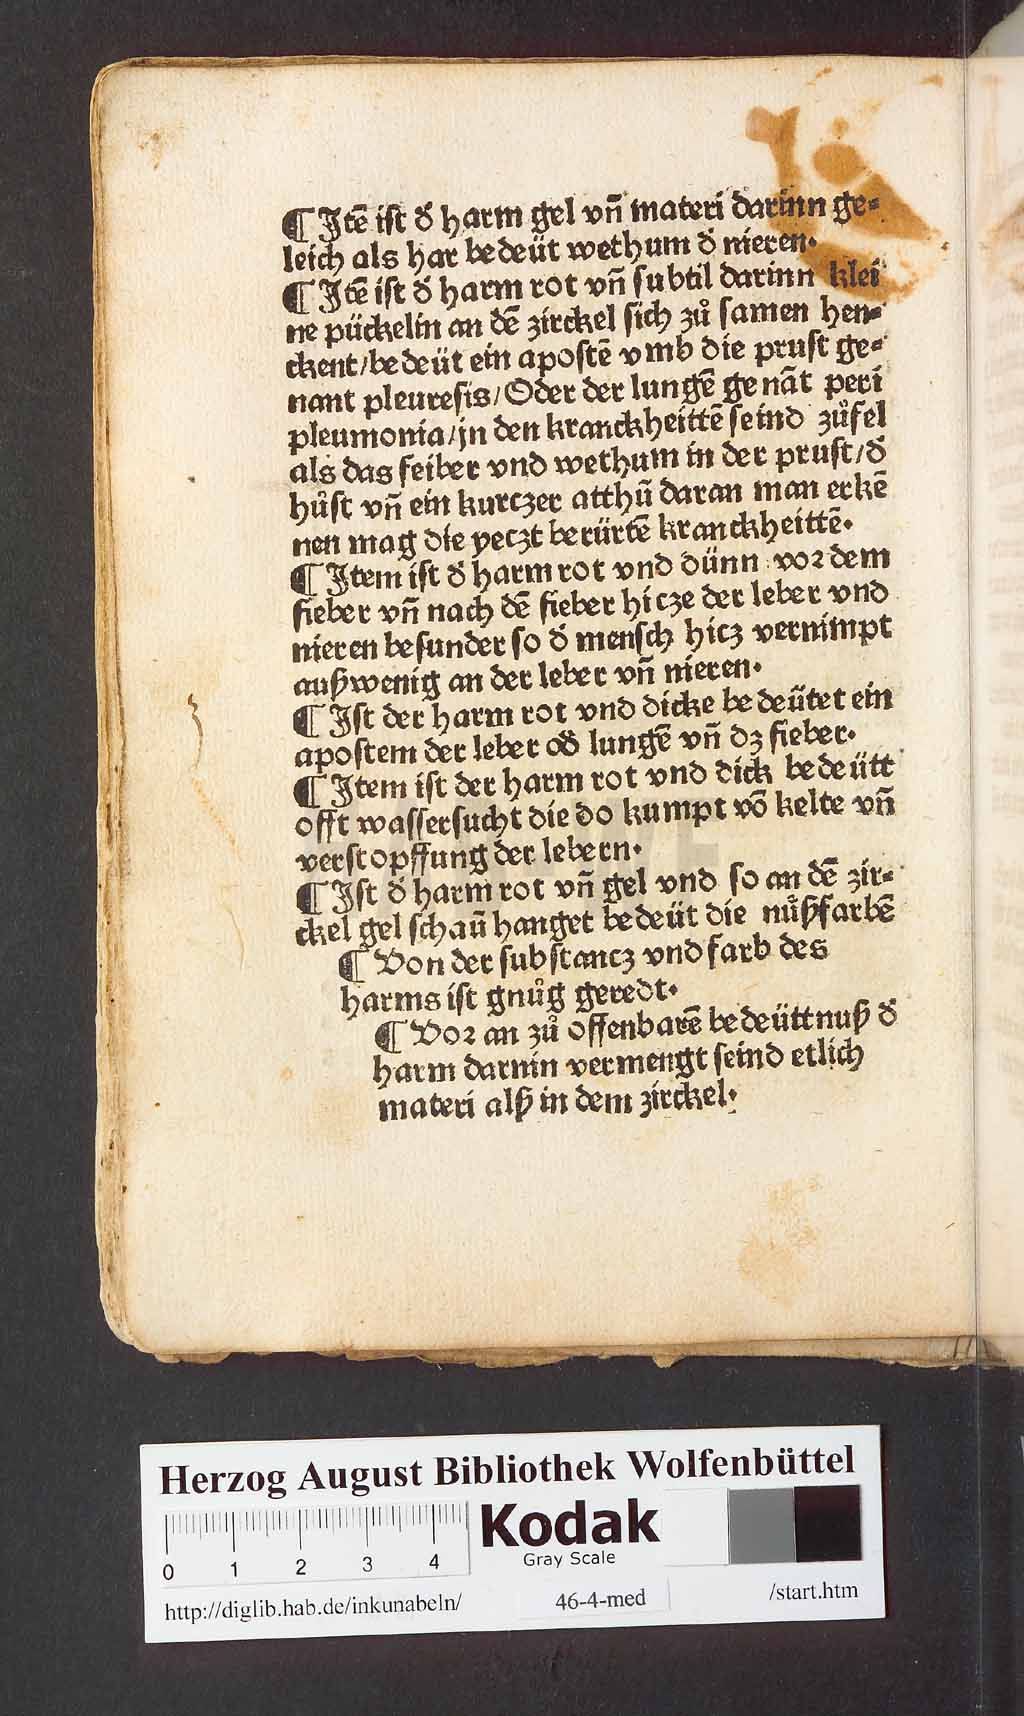 ¶ Jtē ist d̕ harm gel vn̄ materi darinn ge⸗
leich als har bedeüt wethum d̕ nieren.
¶ Jtē ist d̕ harm rot vn̄ subtil darinn klei
ne pückelin an dē zirckel sich zů samen hen⸗
ckent/bedeüt ein apostē vmb die prust ge⸗
nant pleuresis/Oder der lungē genāt peri
pleumonia/jn den kranckheittē seind zůfel
als das feiber vnd wethum in der prust/d̕
hůst vn̄ ein kurczer atthū daran man erkē
nen mag die yeczt berürtē kranckheittē.
¶ Jtem ist d̕ harm rot vnd dünn vor dem
fieber vn̄ nach dē fieber hicze der leber vnd
nieren besunder so d̕ mensch hicz vernimpt
außwenig an der leber vn̄ nieren.
¶ Jst der harm rot vnd dicke bedeütet ein
apostem der leber od̕ lungē vn̄ dz fieber.
¶ Jtem ist der harm rot vnd dick bedeütt
offt wassersucht die do kumpt vō kelte vn̄
verstopffung der lebern.
¶ Jst d̕ harm rot vn̄ gel vnd so an dē zir⸗
ckel gel schaū hanget bedeüt die nůßfarbē
¶ Von der substancz vnd farb des
harms ist gnůg geredt.
¶ Vor an zů offenbarē bedeüttnuß d̕
harm darnin vermengt seind etlich
materi alß in dem zirckel.
Herzog August Bibliothek Wolfenbüttel
0 1 2 3 4
Kodak
Gray Scale
http://diglib.hab.de/inkunabeln/ 46-4-med /start.htm